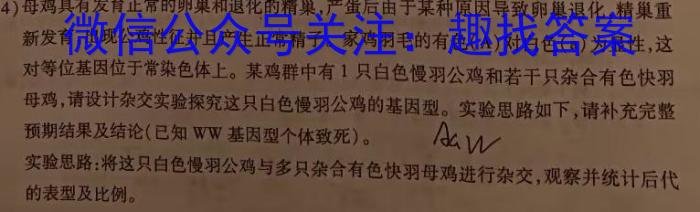 4)母鸡具有发育正常的卵巢和退化的精巢,产蛋后由于某种原因导致卵巢退化,精巢重
新发育,出现公鸡性征并且产生正常精子。家鸡羽毛的有色(A)对白色(a)为显性,这
微信公众号关注:趣找答案
对等位基因位于常染色体上。某鸡群中有1只白色慢羽公鸡和若干只杂合有色快羽
母鸡,请设计杂交实验探究这只白色慢羽公鸡的基因型。实验思路如下,请补充完整
预期结果及结论(已知WW基因型个体致死)。
AaW
实验思路:将这只白色慢羽公鸡与多只杂合有色快羽母鸡进行杂交,观察并统计后代
的表型及比例。